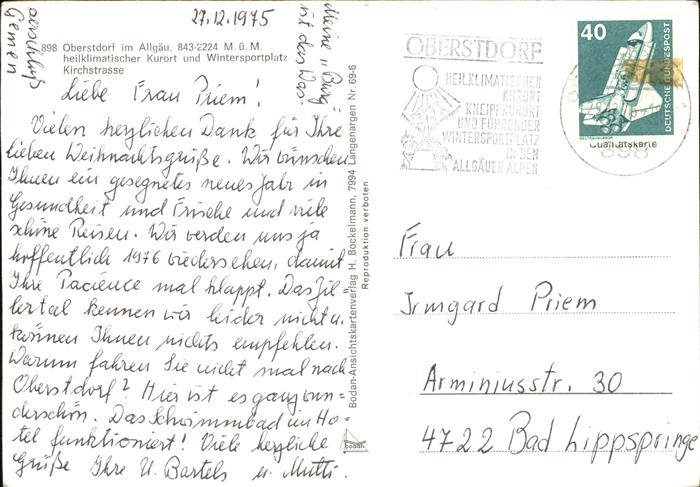 27.12.1975
898 Oberstdorf im Allgäu, 843-2224 M. ü. M.
heilklimatischer Kurort und Wintersportplatz
Kirchstrasse
Liebe Frau Priem!
Vielen herzlichen Dank für Ihre
lieben Weihnachtsgrüße. Wir wünschen
Ihnen ein gesegnetes neues Jahr in
Gesundheit und Frische und viele
schöne Reisen. Wir werden uns ja
hoffentlich 1976 wiedersehen, damit
Ihre Pacience mal klappt. Das Zil-
lertal kennen wir leider nicht u.
können Ihnen nichts empfehlen.
Warum fahren Sie nicht mal nach
Oberstdorf? Hier ist es ganz wun-
derschön. Das Schwimmbad im Ho-
tel funktioniert! Viele herzliche
Grüße Ihre U. Bartels u. Mutti.
Meine "Burg"
ist das Was-
serschloß
Gemen
Bodan-Ansichtskartenverlag H. Bockelmann, 7994 Langenargen Nr. 69-6
Reproduktion verboten
bodan
OBERSTDORF
HEILKLIMATISCHER
KURORT
KNEIPPKURORT
UND FÜHRENDER
WINTERSPORTPLATZ
IN DEN
ALLGÄUER ALPEN
40
DEUTSCHE BUNDESPOST
WELTRAUMLABOR
Qualitätskarte
898
Frau
Irmgard Priem
Arminiusstr. 30
4722 Bad Lippspringe